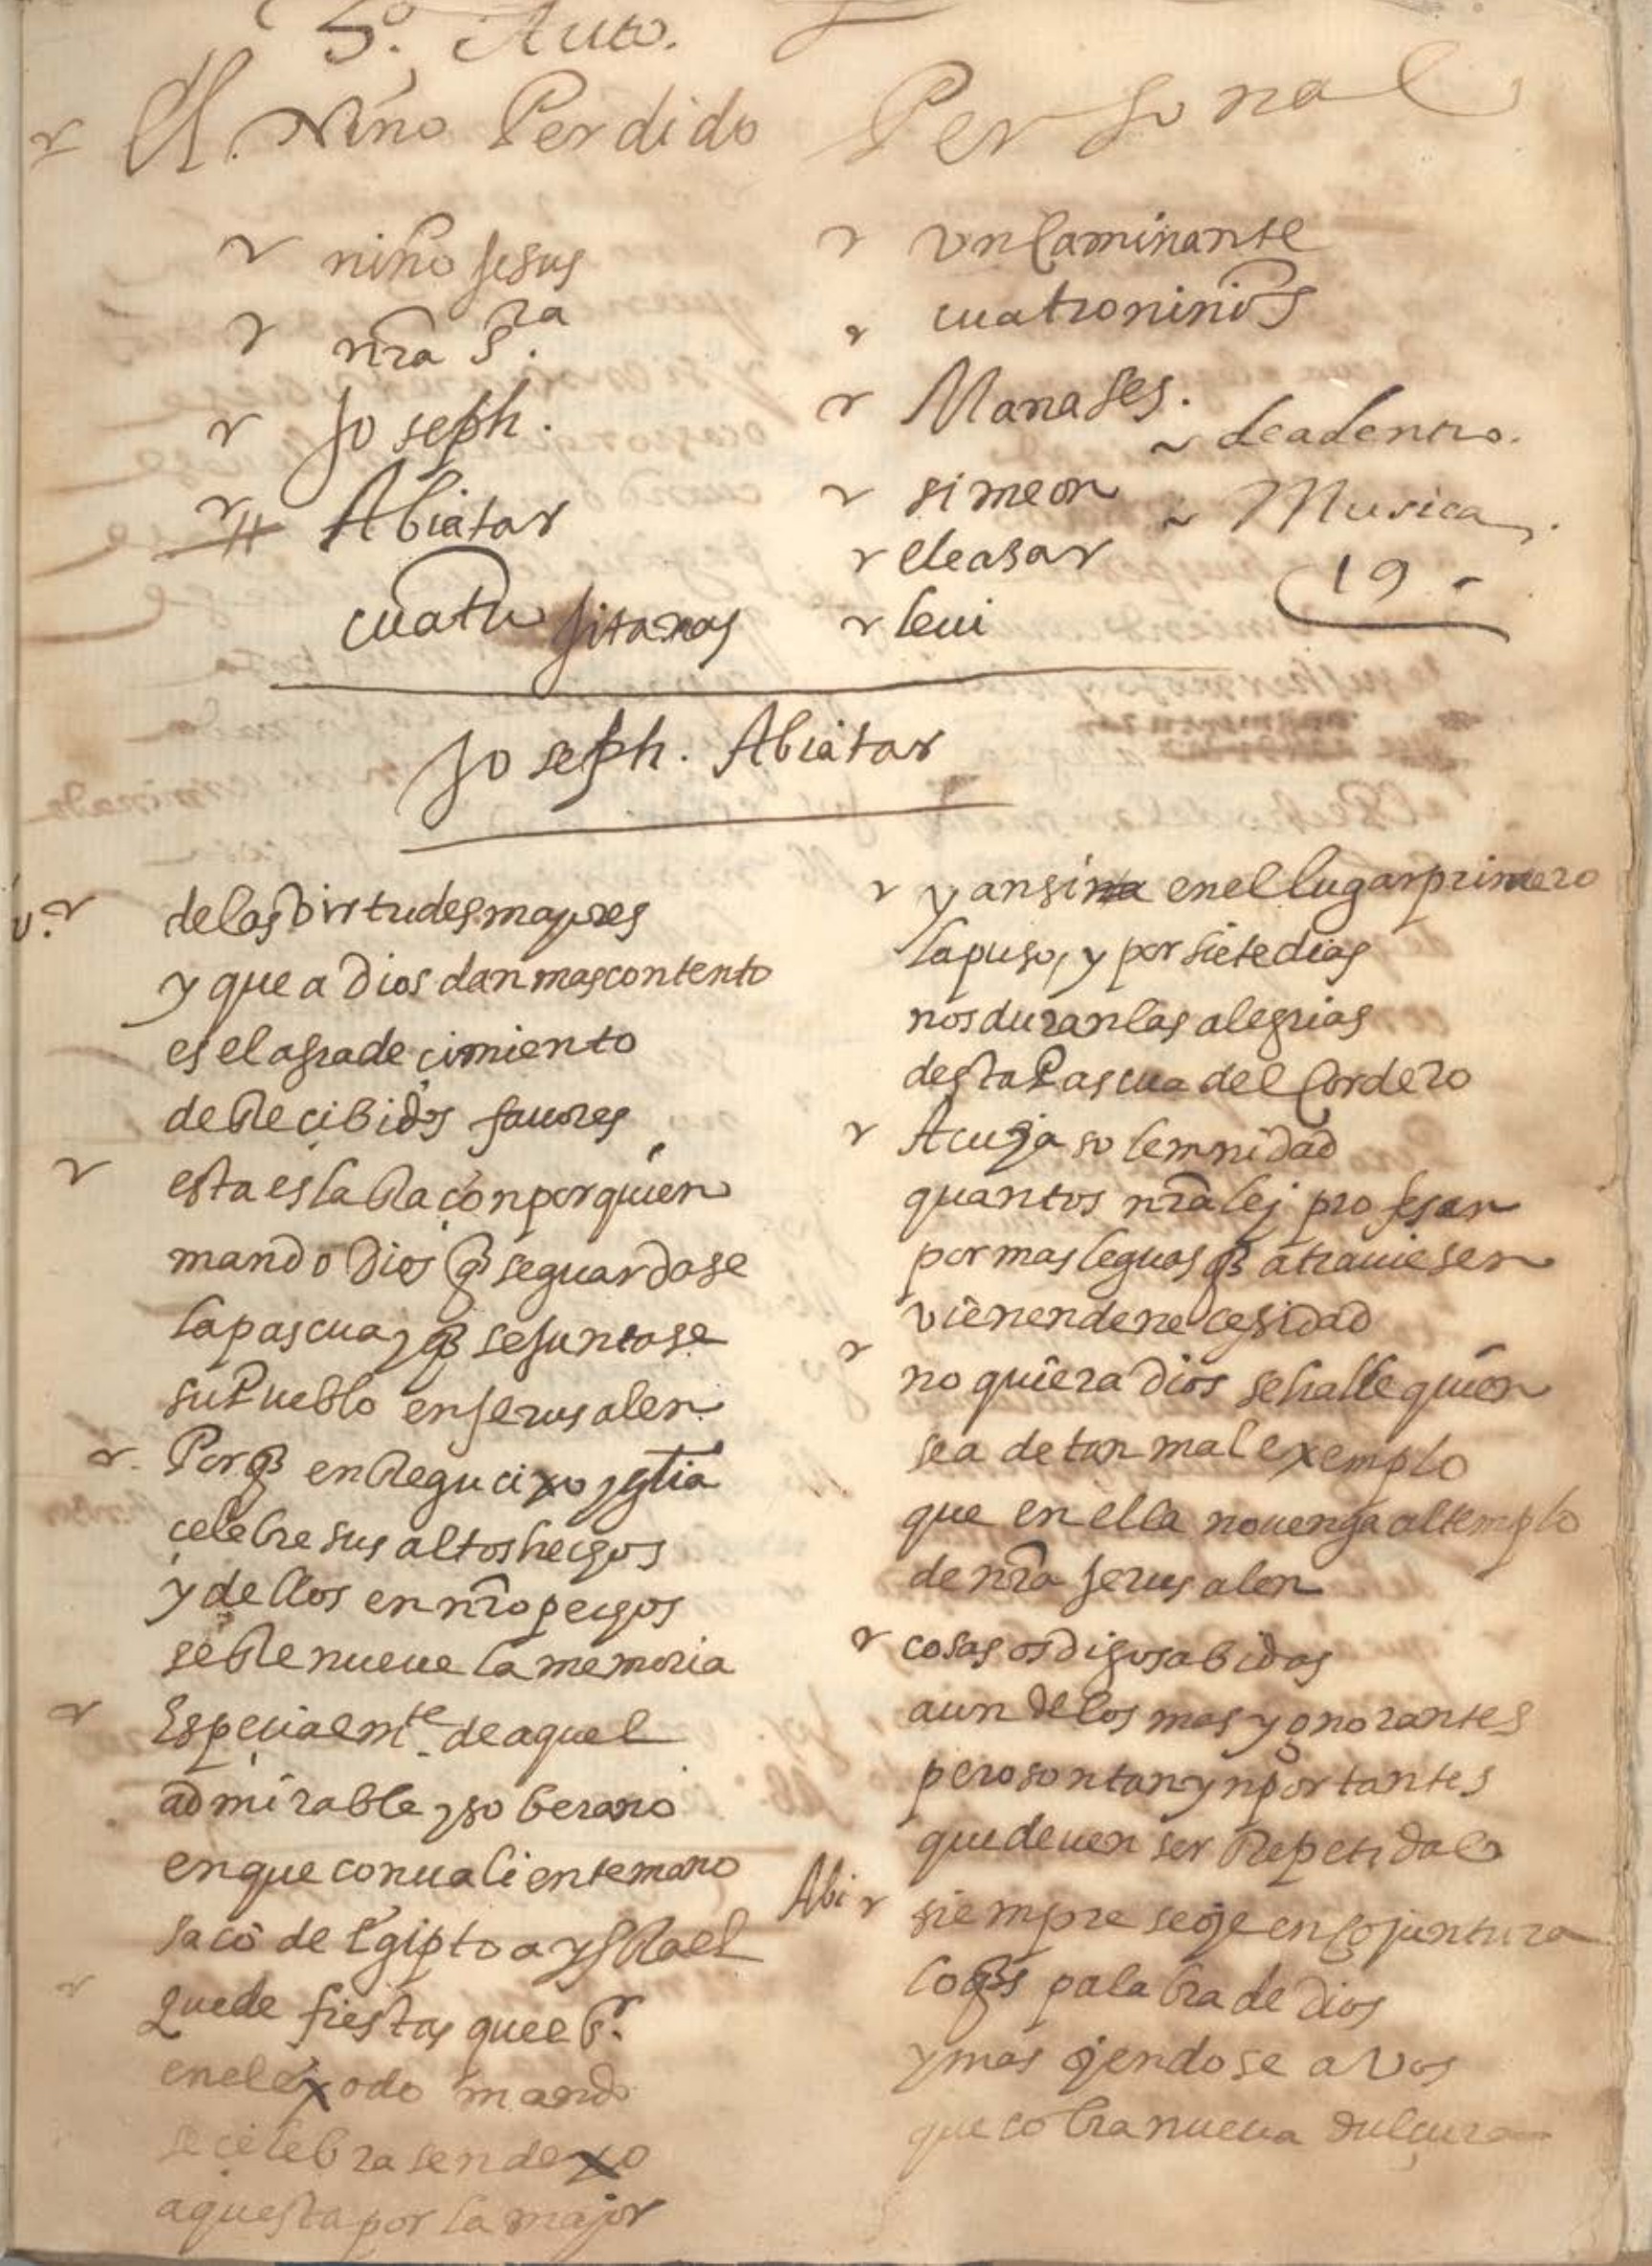 5º. Auto.
El Niño Perdido
Personal
niño Jesus
nrã Sra.
Joseph.
Abiatar
cuatro Jitanas
vn Caminante
cuatro niños
Manases.
simeon
eleasar
leui
~ de adentro.
~ Musica
19
Joseph. Abiatar
de las Virtudes majores
y que a Dios dan mas contento
es el agradeçimiento
de Reçibidos fauores
esta es la Raçon por quien
mando Dios q̃ se guardase
la pascua, y q̃ se juntase
su Pueblo en Jerusalen
Porq̃ en Regucixo y gl̃ia
çelebre sus altos hechos
y dellos en nrõ pechos
se Renueue la memoria
Espeçialmte. de aquel
admirable y soberano
en que con valiente mano
saco de Egipto a ysRael
que de fiestas que el sr.
en el exodo mando
se celebrasen dexo
aquesta por la major
y ansi en el lugar primero
la puso, y por siete dias
nos duran las alegrias
desta Pascua del Cordero
A cuja solemnidad
quantos nrã lej profesan
por mas leguas q̃ atrauiesen
vienen de neçesidad
no quiera Dios se halle quien
sea de tan mal exemplo
que en ella no venga al templo
de nrã Jerusalen
cosas os digo sabidas
aun de los mas ygnorantes
pero son tan ynportantes
que deuen ser Repetidas
Abi siempre se oje en cojuntura
lo q̃ es palabra de Dios
y mas ojendose a Vos
que cobra nueua dulçura